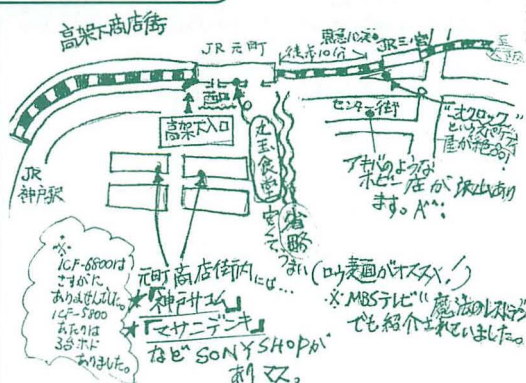 高架下商店街
JR 元町
徒歩10分
JR三ノ宮
西口
高架下入口
JR
神戸駅
丸玉食堂
安くて、うまい
省略
センター街
"オクロック"
というスパゲティ
店が絶品!
アキバのような
ホビー店が沢山あり
ます。A^^;
(ロウ麺がオススメ!)
※MBSテレビ"魔法のレストラン
でも紹介されていました。
元町商店街内には…
★『神戸サコム』
★『マサニデンキ』
など SONY SHOPが
ありマス。
※
ICF-6800は
さすがに
ありませんでした。
ICF-5800
あたりは
3台ホド
ありました。